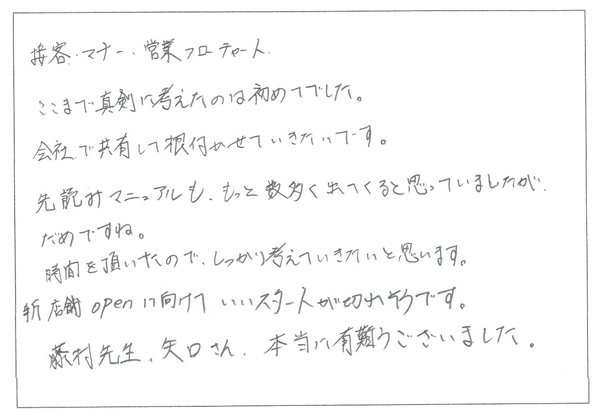 接客・マナー・営業フローチャート
ここまで真剣に考えたのは初めてでした。
会社で共有して根付かせていきたいです。
先読みマニュアルも、もっと数多く出てくると思っていましたが、
だめですね。
時間を頂いたので、しっかり考えていきたいと思います。
新店舗openに向けていいスタートが切れそうです。
藤村先生、矢口さん、本当に有難うございました。